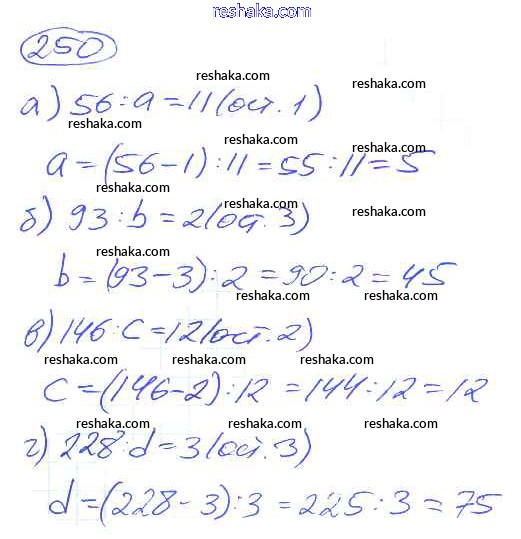 reshaka.com
250
reshaka.com
а) 56 : a = 11 (ост. 1)
reshaka.com reshaka.com
a = (56 – 1) : 11 = 55 : 11 = 5
reshaka.com reshaka.com
б) 93 : b = 2 (ост. 3) reshaka.com
reshaka.com
b = (93 – 3) : 2 = 90 : 2 = 45
reshaka.com reshaka.com
в) 146 : c = 12 (ост. 2)
reshaka.com reshaka.com reshaka.com
c = (146 – 2) : 12 = 144 : 12 = 12
reshaka.com reshaka.com
г) 228 : d = 3 (ост. 3)
reshaka.com reshaka.com
d = (228 – 3) : 3 = 225 : 3 = 75
reshaka.com reshaka.com